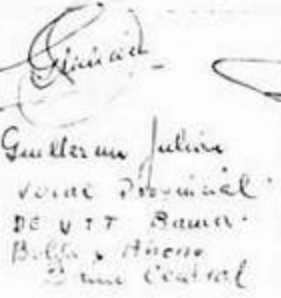 Guillermo Julian
Vocal Provincial
DE UTT Banca
Bolsa y Ahorro
Central